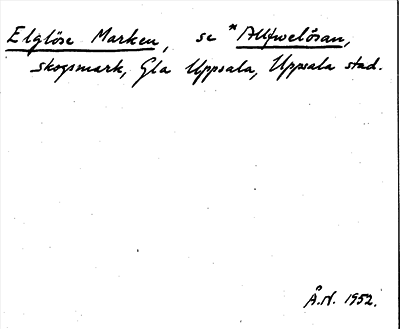 Elglöse Marken, se *Allfwelösan,
skogsmark, Gla Uppsala, Uppsala stad.
Å.N. 1952.